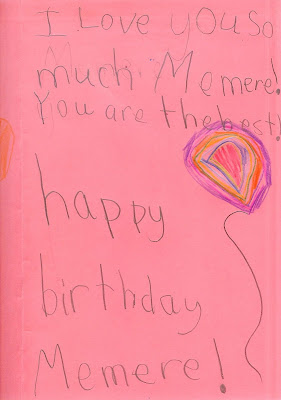 I Love you so
much Memere!
You are the best!
happy
birthday
Memere!